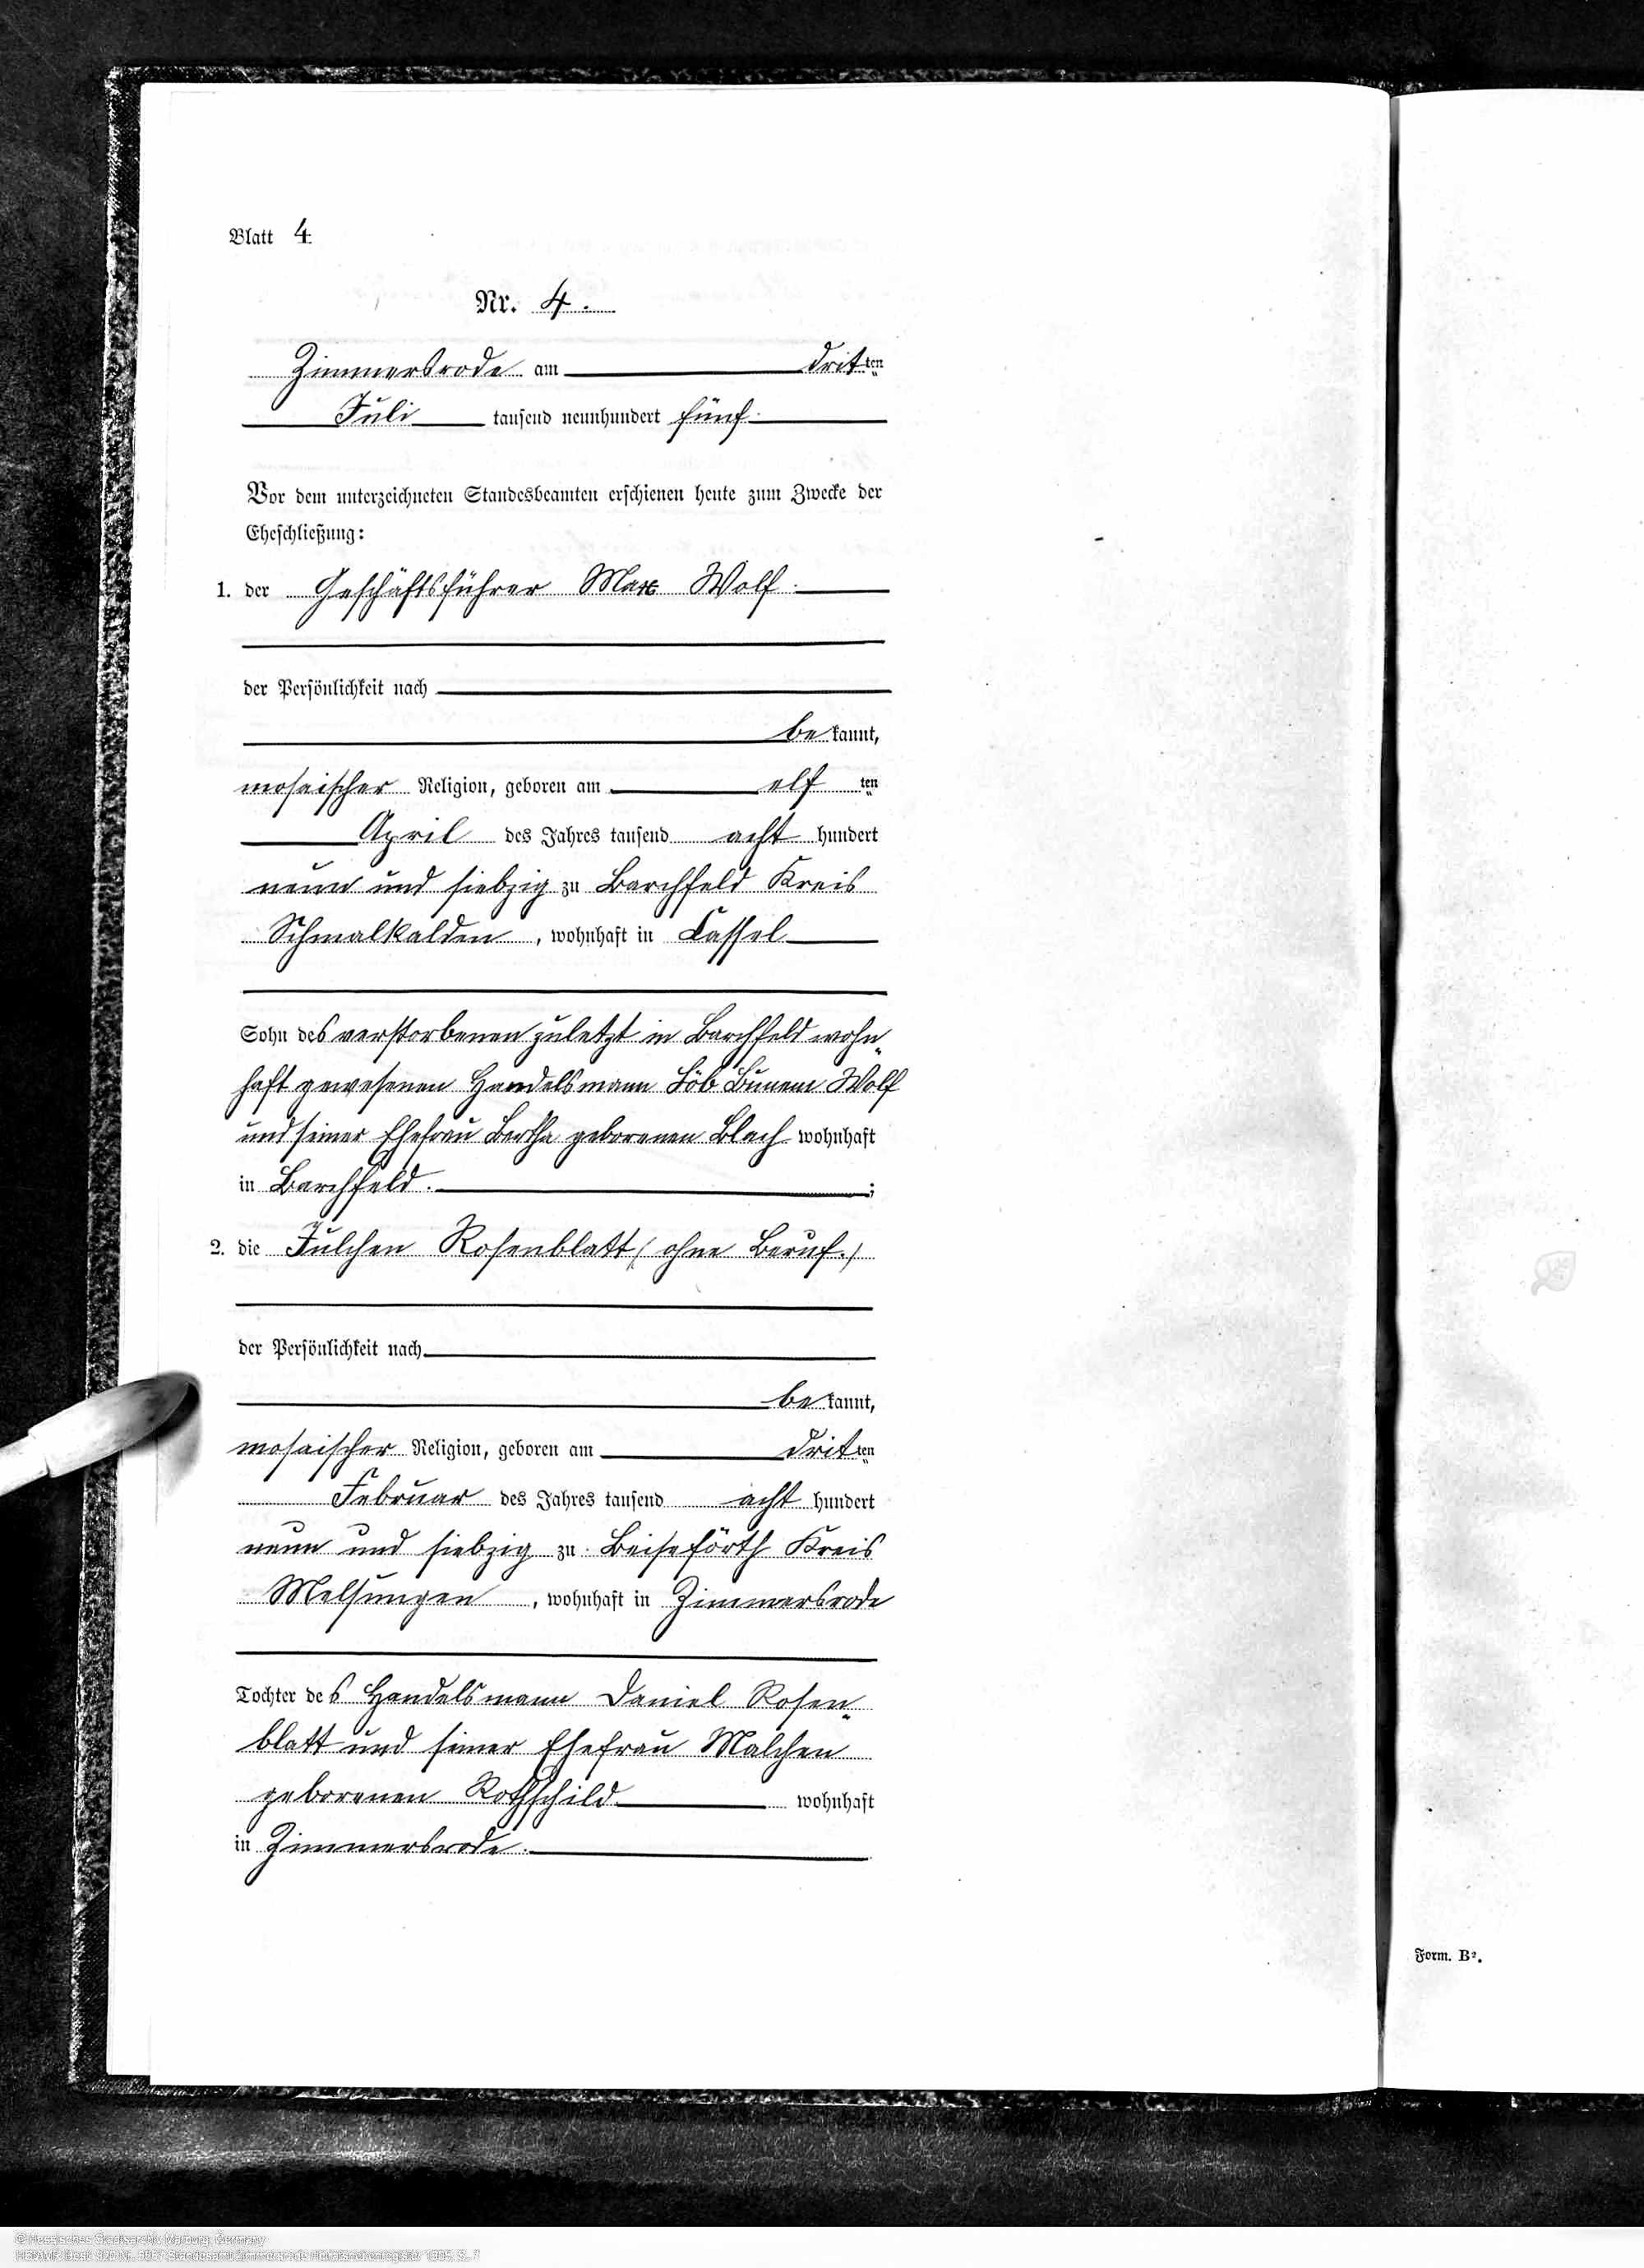 Blatt 4
Nr. 4.
Zimmersrode am dritten
Juli tausend neunhundert fünf
Vor dem unterzeichneten Standesbeamten erschienen heute zum Zwecke der
Eheschließung:
1. der Geschäftsführer Max Wolf
der Persönlichkeit nach
bekannt,
mosaischer Religion, geboren am elf ten
April des Jahres tausend acht hundert
neun und siebzig zu Barchfeld Kreis
Schmalkalden, wohnhaft in Cassel
Sohn des verstorbenen zuletzt in Barchfeld wohn„
haft gewesenen Handelsmann Löb Bunem Wolf
und seiner Ehefrau Bertha geborenen Blach wohnhaft
in Barchfeld. ;
2. die Julchen Rosenblatt (ohne Beruf.)
der Persönlichkeit nach
bekannt,
mosaischer Religion, geboren am dritten
Februar des Jahres tausend acht hundert
neun und siebzig zu Beiseförth Kreis
Melsungen, wohnhaft in Zimmersrode
Tochter des Handelsmann Daniel Rosen„
blatt und seiner Ehefrau Malchen
geborenen Rothschild wohnhaft
in Zimmersrode.
Form. B².
© Hessisches Staatsarchiv Marburg, Germany